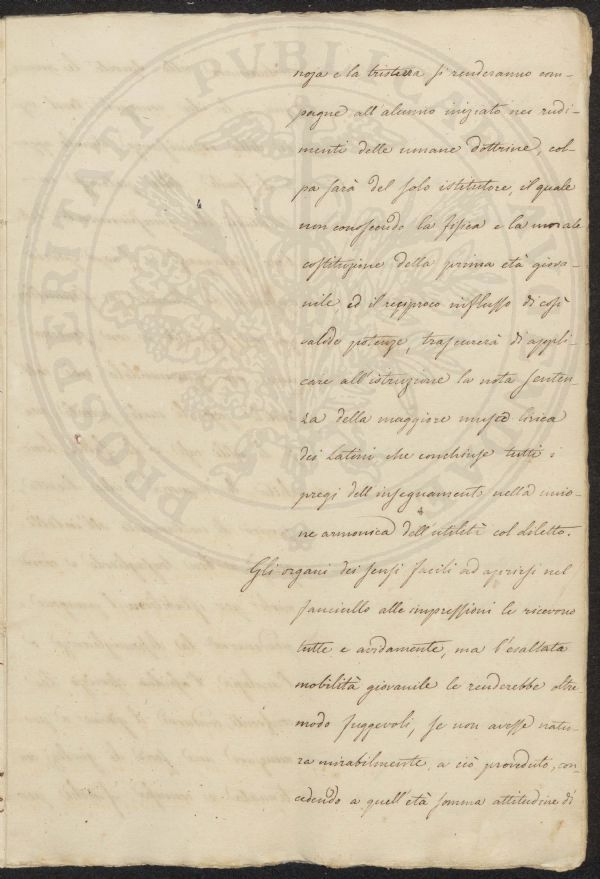 noja e la tristezza si renderanno com-
pagne all'alunno iniziato nei rudi-
menti delle umane dottrine, col-
pa sarà del solo istitutore, il quale
non conoscendo la fisica e la morale
costituzione della prima età giova-
nile ed il reciproco influsso di così
valide potenze, trascurerà di appli-
care all'istruzione la nota senten-
za della maggiore musa lirica
dei Latini che conchiuse tutti i
pregi dell'insegnament nella unio-
ne armonica dell'utilità col diletto.
Gli organi dei sensi facili ad aprirsi nel
fanciullo alle impressioni le ricevono
tutte e avidamente, ma l'esaltata
mobilità giovanile le renderebbe oltre
modo fuggevoli, se non avesse natu-
ra mirabilmente a ciò proveduto, con-
cedendo a quell'età somma attitudine di
PROSPERITATI PUBLICAE